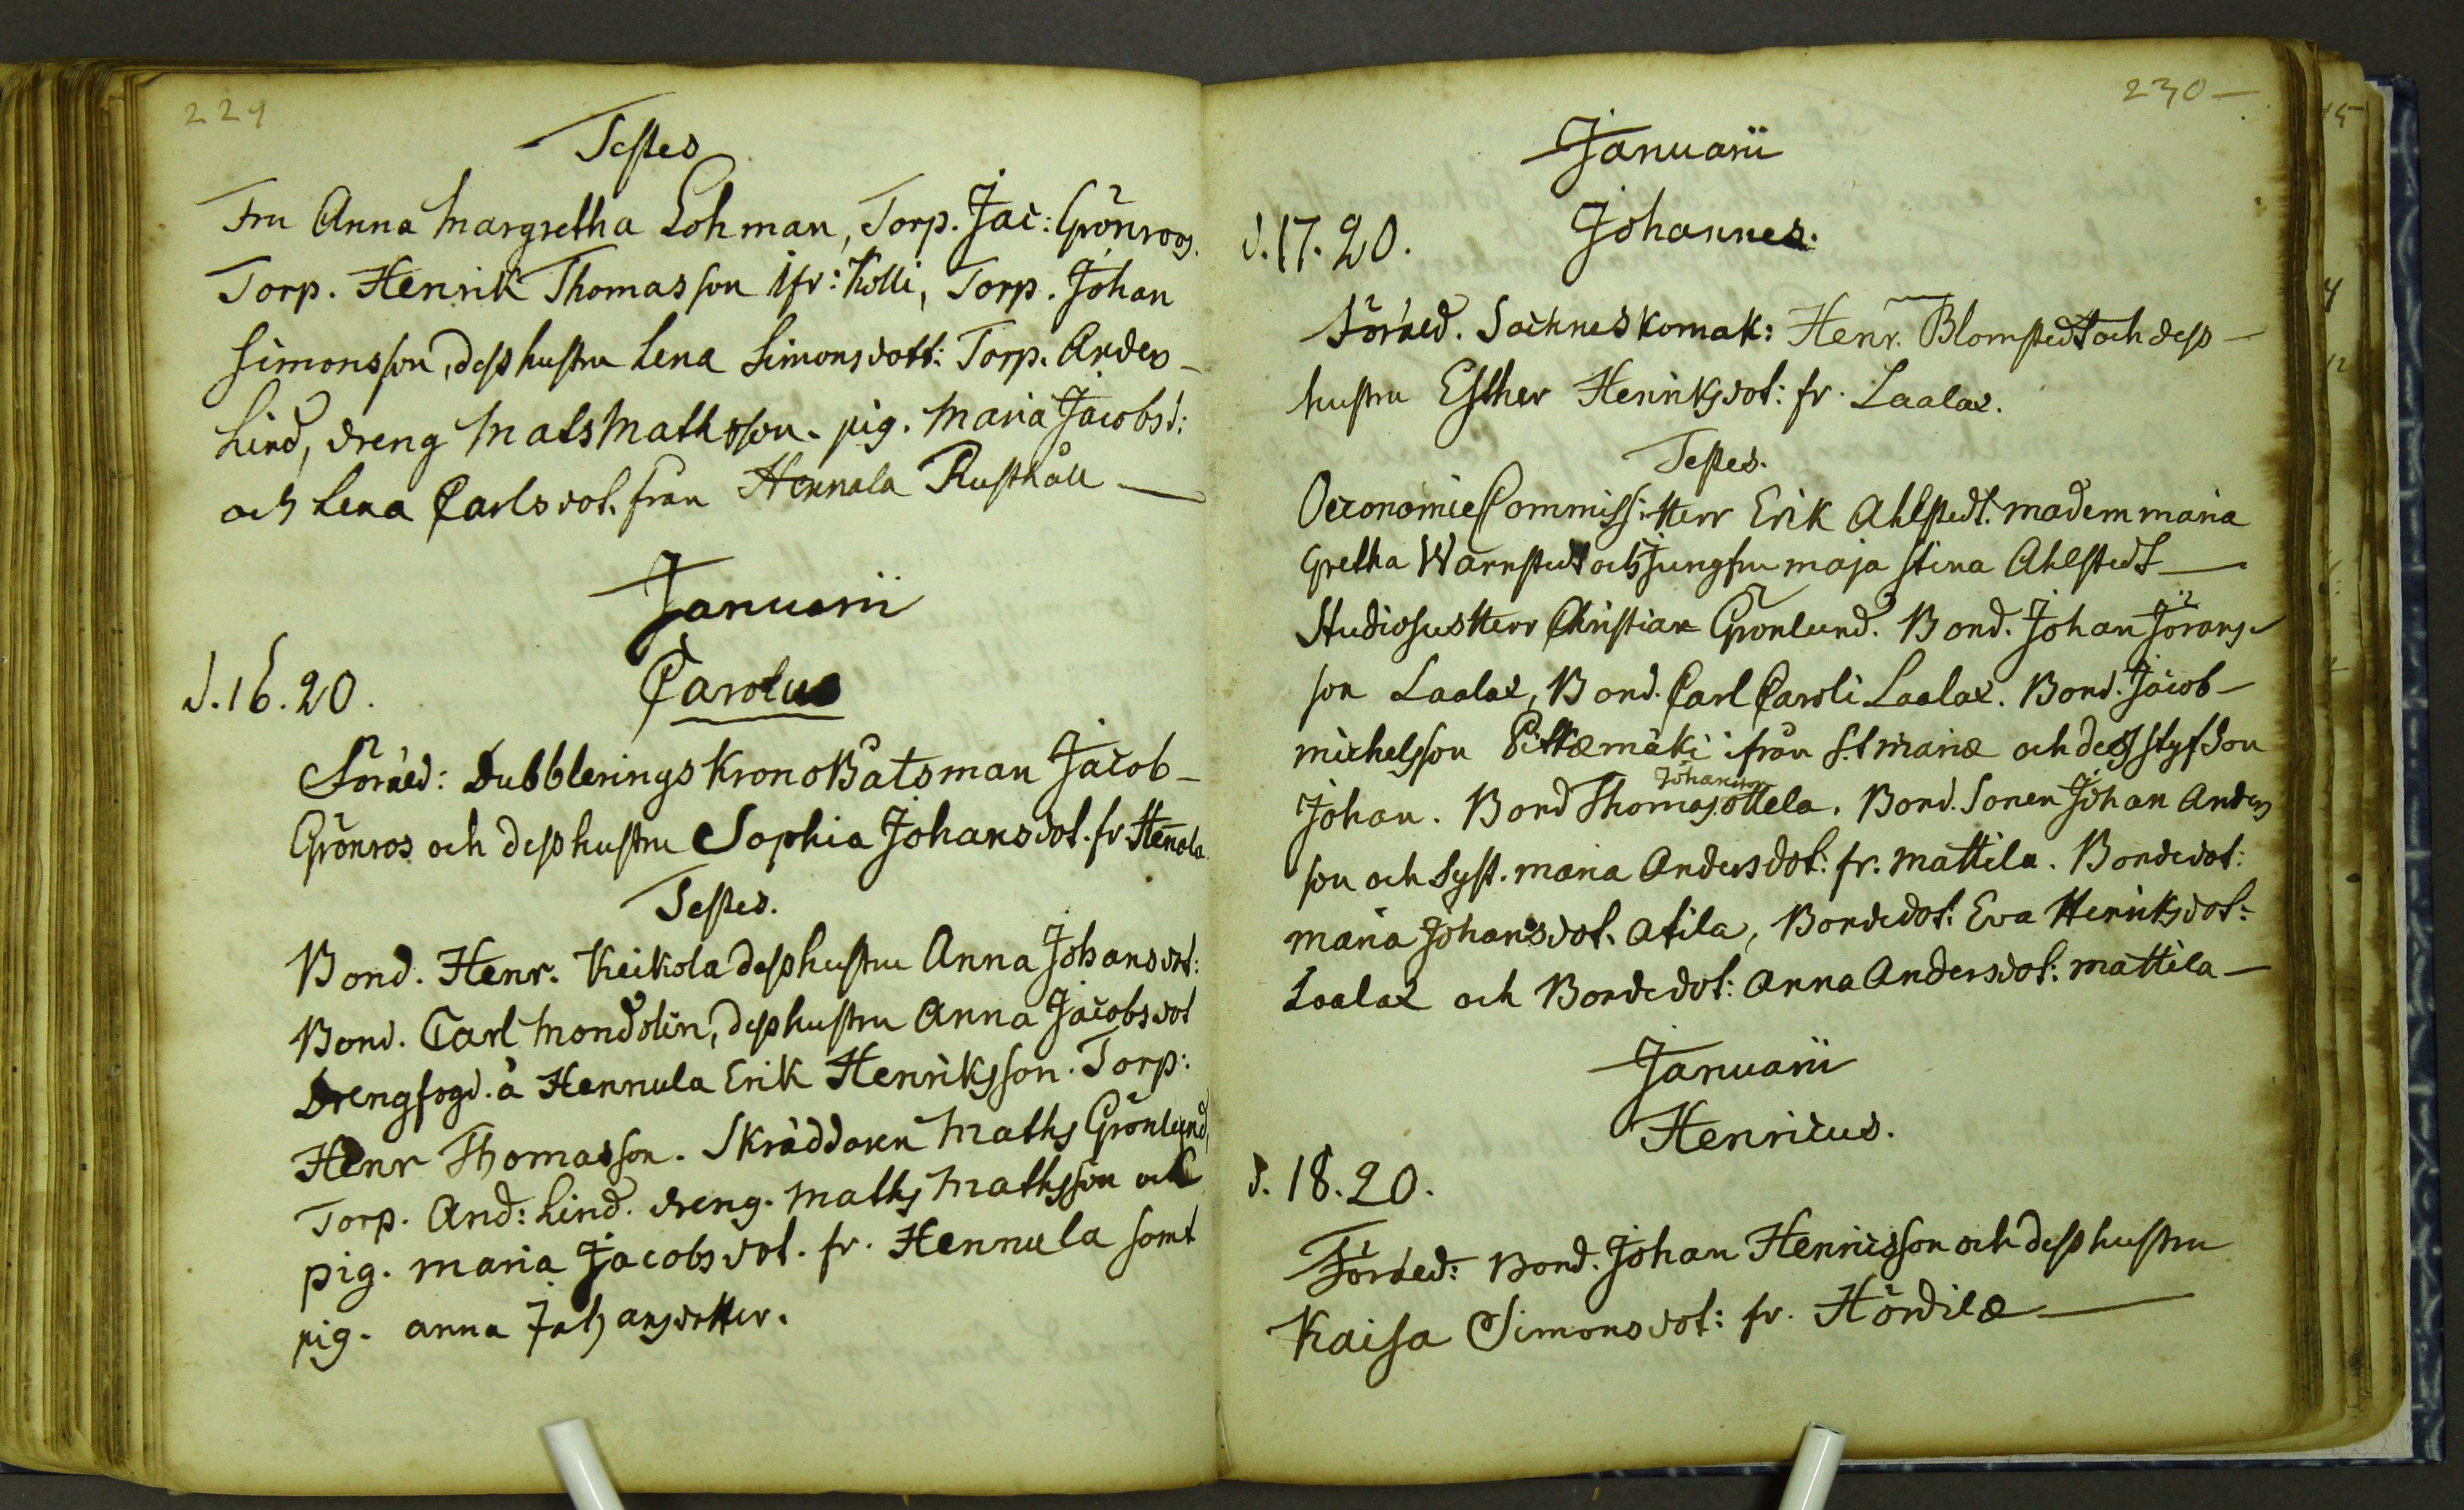 229
Testes
Fru Anna Margretha Lohman, Torp. Jac: Grönroos.
Torp. Henrik Thomasson ifr: Kolli, Torp. Johan
Simonsson, dess hustru Lena Simonsdott: Torp. Anders
Lind, dreng Mats Mathsson. pig. Maria Jacobsd:
och Lena Carlsdot. från Hennala Rusthåll —
Januarii
d. 16. 20. Carolus
Föräld: Dubblerings Krono Båtsman Jacob
Grönros och dess hustru Sophia Johansdot. fr. Henala
Testes.
Bond. Henr. Keikola dess hustru Anna Johansdot:
Bond. Carl Mondolin, dess hustru Anna Jacobsdot
Drengfogd. å Hennula Erik Henriksson. Torp:
Henr Thomasson. Skräddaren Maths Grönlund,
Torp. And: Lind. dreng. Maths Mathsson och
pig. Maria Jacobsdot. fr. Hennula samt
pig. anna Johansdotter.
230 —
Januarii
d. 17. 20. Johannes.
Föräld. Sockneskomak: Henr. Blomstedt och dess
hustru Esther Henriksdot: fr. Laalax.
Testes.
Oeconomie Commiss: Herr Erik Ahlstedt. madem maria
Gretha Warnstedt och Jungfru maja Stina Ahlstedt —
Studiosus Herr Christian Grönlund. Bond. Johan Jörans
son Laalax, Bond. Carl Caroli Laalax. Bond. Jacob
michelsson Pittkæmäki ifrån S:t mariæ och dess styfson
Johan. Bond Thomas Johansson Ottela. Bond. Sonen Johan Anders
son och Syst. maria Andersdot: fr. mattila. Bondedot:
maria Johansdot. Atila, Bondedot: Eva Henriksdot:
Laalax och Bondedot: Anna Andersdot: mattila —
Januarii
Henricus.
d. 18. 20.
Föräld: Bond. Johan Henricsson och dess hustru
Kaisa Simonsdot: fr. Hördilæ —